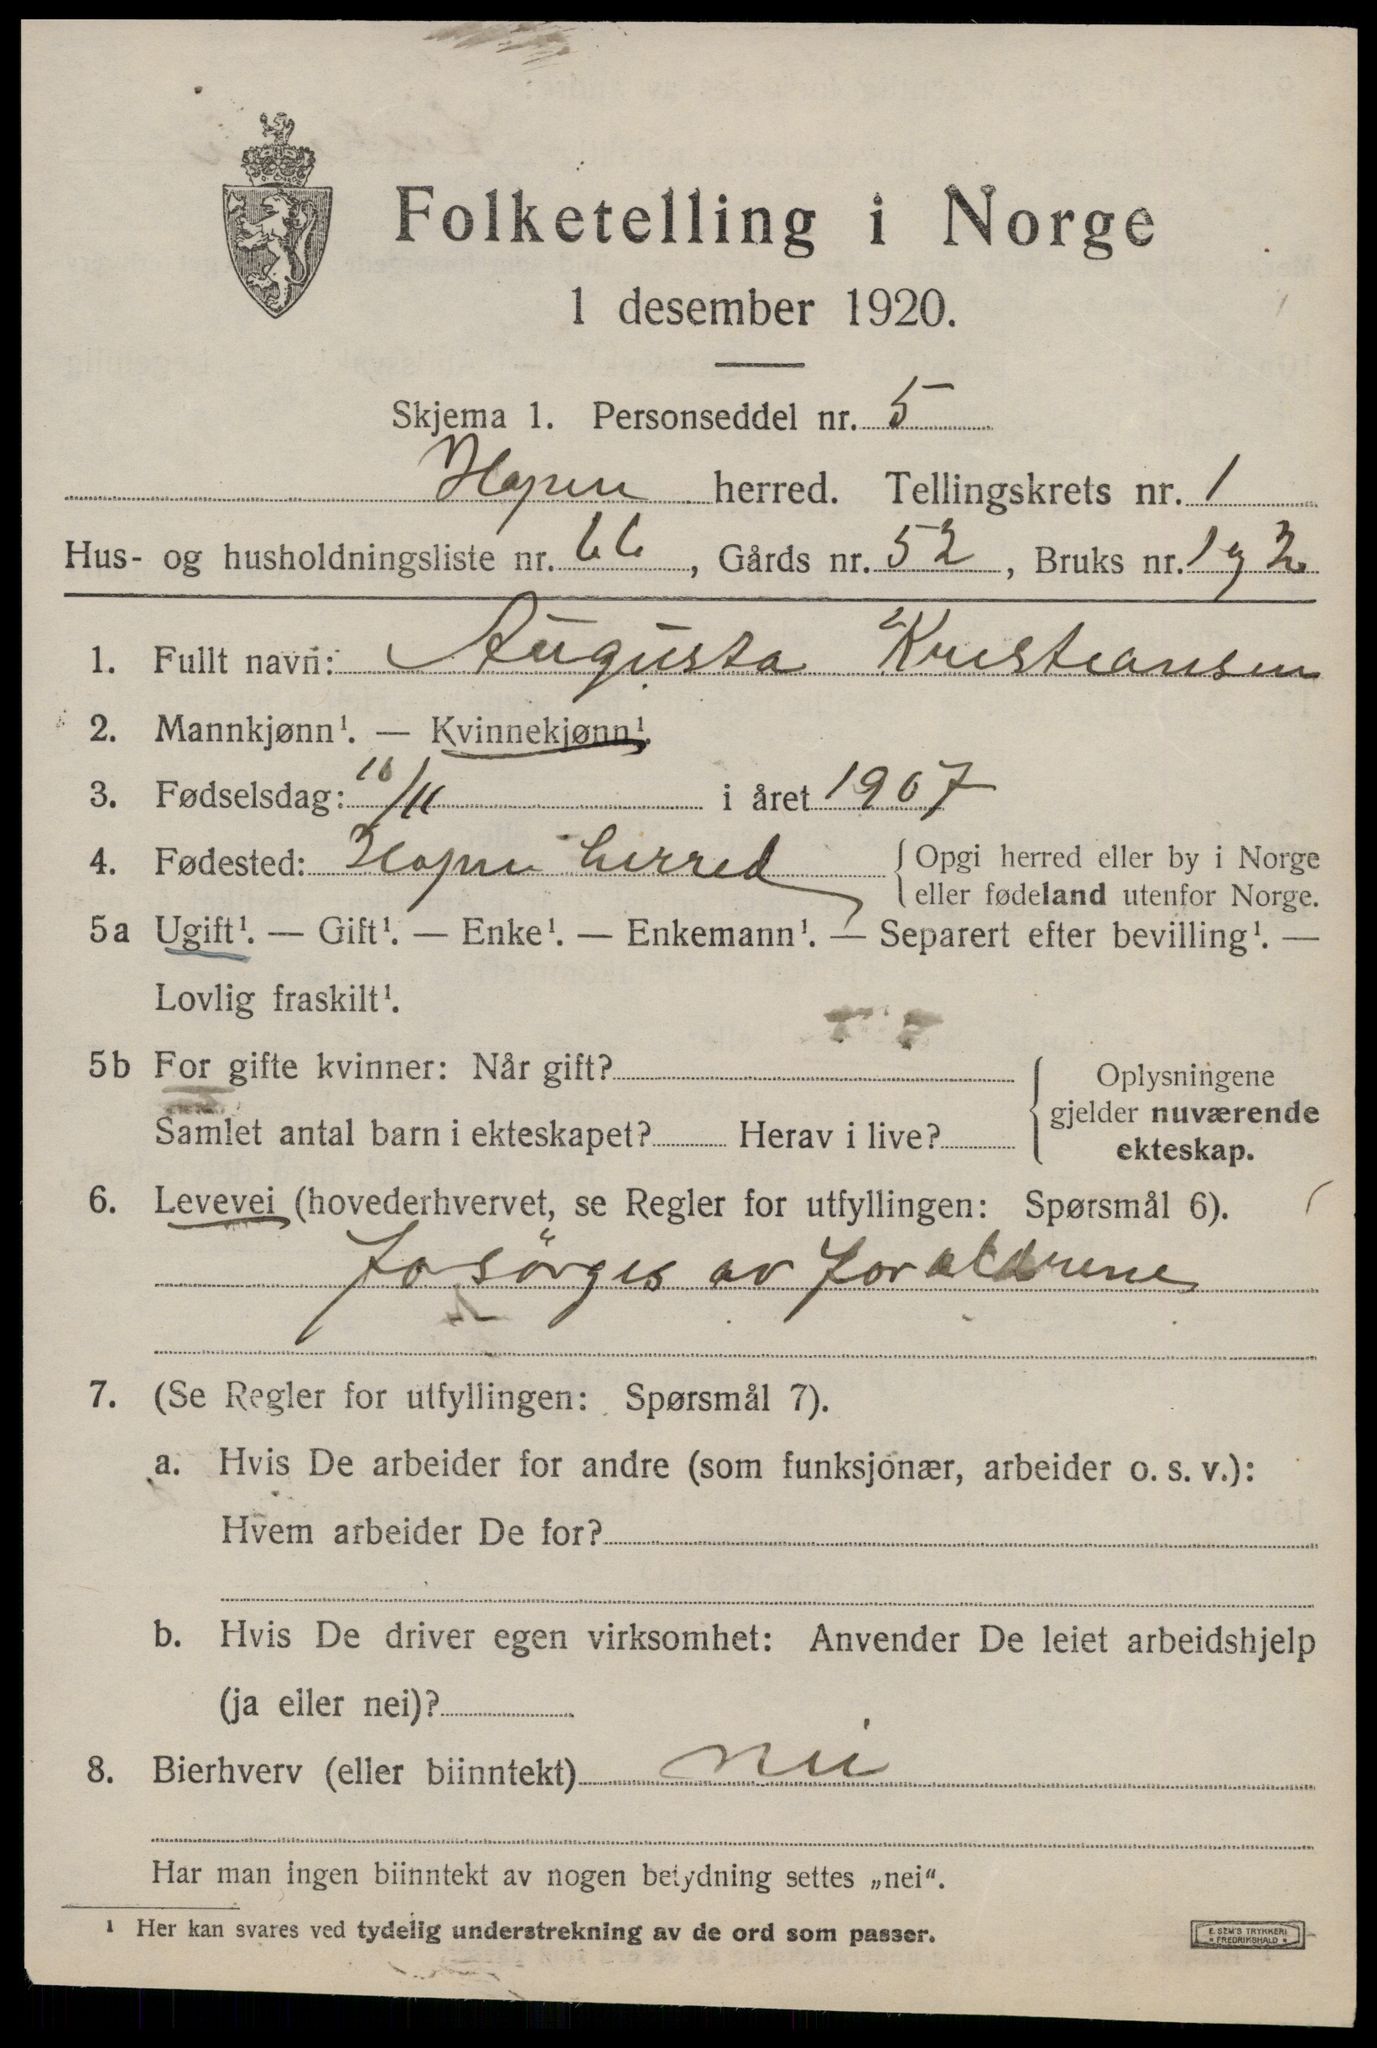 Folketelling i Norge
1 desember 1920.
Skjema 1. Personseddel nr. 5
Hopen herred. Tellingskrets nr. 1
Hus- og husholdningsliste nr. 66, Gårds nr. 52, Bruks nr. 1 og 2
1. Fullt navn: Augusta Kristiansen
2. Mannkjønn¹. — Kvinnekjønn¹.
3. Fødselsdag: 16/11 i året 1907
4. Fødested: Hopen herred {Opgi herred eller by i Norge
eller fødeland utenfor Norge.
5a Ugift¹. — Gift¹. — Enke¹. — Enkemann¹. — Separert efter bevilling¹. —
Lovlig fraskilt¹.
5b For gifte kvinner: Når gift? {Oplysningene
gjelder nuværende
Samlet antal barn i ekteskapet? Herav i live?
ekteskap.
6. Levevei (hovederhvervet, se Regler for utfyllingen: Spørsmål 6).
fosörges av foraldrene
7. (Se Regler for utfyllingen: Spørsmål 7).
a. Hvis De arbeider for andre (som funksjonær, arbeider o. s. v.):
Hvem arbeider De for?
b. Hvis De driver egen virksomhet: Anvender De leiet arbeidshjelp
(ja eller nei)?
8. Bierhverv (eller biinntekt) nei
Har man ingen biinntekt av nogen betydning settes „nei“.
¹ Her kan svares ved tydelig understrekning av de ord som passer.
E. SEM'S TRYKKERI
* FREDRIKSHALD *